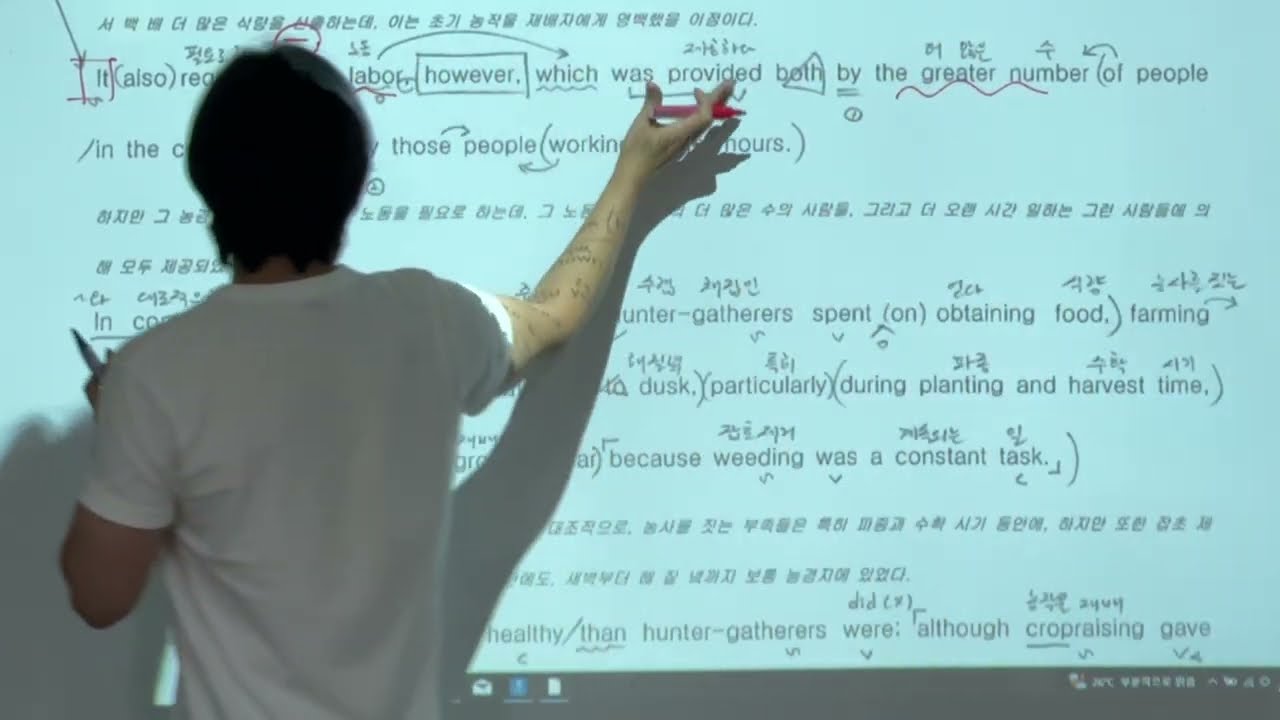 서 백 배 더 많은 식량을 산출하는데, 이는 초기 농작물 재배자에게 명백했을 이점이다.
노동 제공하다 더 많은 수
It (also) labor, however, which was provided both by the greater number (of people
①
/in the those people (working hours.)
②
하지만 그 노동을 필요로 하는데, 그 더 많은 수의 사람들, 그리고 더 오랜 시간 일하는 그런 사람들에 의
해 모두 제공되었
~와 대조적으 수렵 채집인 얻다 식량 농사를 짓는
In spent (on) obtaining food,) farming
해질녘 특히 파종 수확 시기
dusk,) (particularly) (during planting and harvest time,)
재배 잡초제거 계속되는 일
because weeding was a constant task.)
대조적으로, 농사를 짓는 부족들은 특히 파종과 수확 시기 동안에, 하지만 또한 잡초 제
새벽부터 해 질 녘까지 보통 농경지에 있었다.
did (X) 농작물 재배
healthy/than hunter-gatherers were: although cropraising gave
26℃